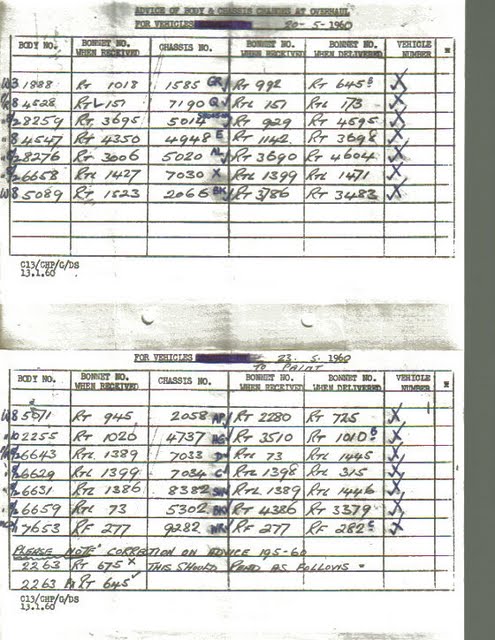 ADVICE OF BODY & CHASSIS CHANGES AT OVERHAUL
FOR VEHICLES 20-5-1960
BODY NO. BONNET NO. WHEN RECEIVED CHASSIS NO. BONNET NO. WHEN RECEIVED BONNET NO. WHEN DELIVERED VEHICLE NUMBER
W3 1888 RT 1018 1585 GR RT 992 RT 645
8 4528 RTL 151 7190 Q RTL 151 RTL 173
8259 RT 3695 5014 RT 929 RT 4595
8 4547 RT 4350 4948 E RT 1142 RT 3698
8276 RT 3606 5020 AL RT 3690 RT 4604
6658 RTL 1427 7030 X RTL 1399 RTL 1471
W8 5089 RT 1523 2066 BK RT 3786 RT 3483
C13/CHP/G/DS
13.1.60
FOR VEHICLES 23.5.1960
TO PAINT
BODY NO. BONNET NO. WHEN RECEIVED CHASSIS NO. BONNET NO. WHEN RECEIVED BONNET NO. WHEN DELIVERED VEHICLE NUMBER
W8 5071 RT 945 2058 AP RT 2280 RT 725
2255 RT 1020 4737 RT 3510 RT 1010
6643 RTL 1389 7033 D RTL 73 RTL 1445
6629 RTL 1399 7034 C RTL 1398 RTL 315
6631 RTL 1386 8382 SW RTL 1389 RTL 1446
6659 RTL 73 5302 RT 4386 RT 3379
7653 RF 277 9282 RF 277 RF 282
PLEASE NOTE CORRECTION ON ADVICE 19-5-60
2263 RT 675 X THIS SHOULD READ AS FOLLOWS -
2263 RT 645
C13/CHP/G/DS
13.1.60